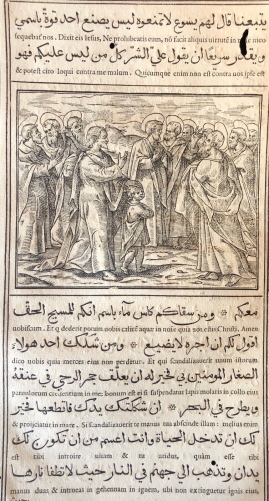 يتبعنا قال لهم يسوع لا تمنعوه ليس يصنع احد قوة باسمي
sequebat nos. Dixit eis Iesus, Ne prohibeatis eum, nõ facit aliquis virtutẽ in noĩe meo
ويقدر سريعًا ان يقول علي الشر كل من ليس عليكم فهو
& potest cito loqui contra me malum. Quicumque enim non est contra vos ipse est
معكم ومن سقاكم كاس ماء باسم انكم للمسيح الحق
vobiscum. Et q dederit potum vobis calicẽ aquæ in noĩe quia vos estis Christi, Amen
اقول لكم ان اجره لا يضيع ومن شكك احد هولاء
dico vobis quia merces eius non perditur. Et qui scandalizauerit vnum istorum
الصغار المومنين بي خير له ان يعلق حجر الرحي في عنقه
paruulorum credentium in me: bonum est ei si suspendatur lapis molaris in collo eius
ويطرح في البحر ان شككتك يدك فاقطعها خير
& projiciatur in mare. Si scandalizauerit te manus tua abscinde illam: melius enim
لك ان تدخل الحياة وانت اعسم من ان تكون لك
est tibi introire vitam & tu aridus, quàm esse tibi
يدان وتذهب الي جهنم في النار حيث لا تطفا نارها
manus duas & introeas in gehennam in ignem, vbi non extinguetur ignis eius.